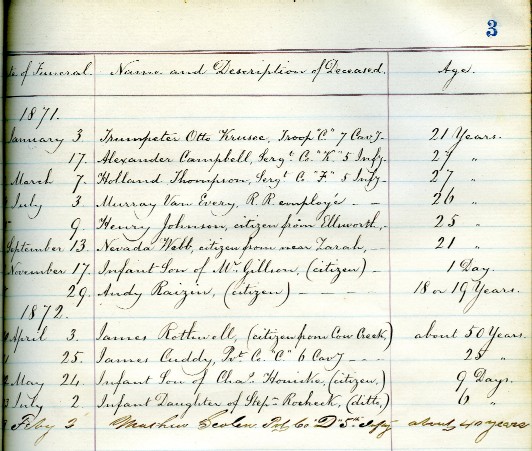 3
of Funeral. Name and Description of Deceased. Age.
1871.
January 3 Trumpeter Otto Krusee, Troop "C" 7 Cavy. 21 Years.
17. Alexander Campbell, Sergt. Co. "K" 5 Infy. 27 "
March 7. Holland Thompson, Sergt. Co. "F" 5 Infy. 27 "
July 3 Murray Van Every, R.R. employé - - 26 "
9. Henry Johnson, citizen from Ellsworth, - 25 "
September 13. Nevada Webb, citizen from near Zarah, - 21 "
November 17. Infant Son of Mr. Gillson, (citizen) - 1 Day.
29. Andy Raizin, (citizen) - - - - 18 or 19 Years.
1872.
April 3. James Rothwell, (citizen from Cow Creek,) about 50 Years.
25. James Cuddy, Pvt. Co. "C" 6 Cavy - - - 25 "
May 24. Infant Son of Chas. Houike, (citizen,) 9 Days.
July 2. Infant Daughter of Stepn. Rocheck, (ditto,) 6 "
Feby 3 Co. D 5th Infy about 40 years